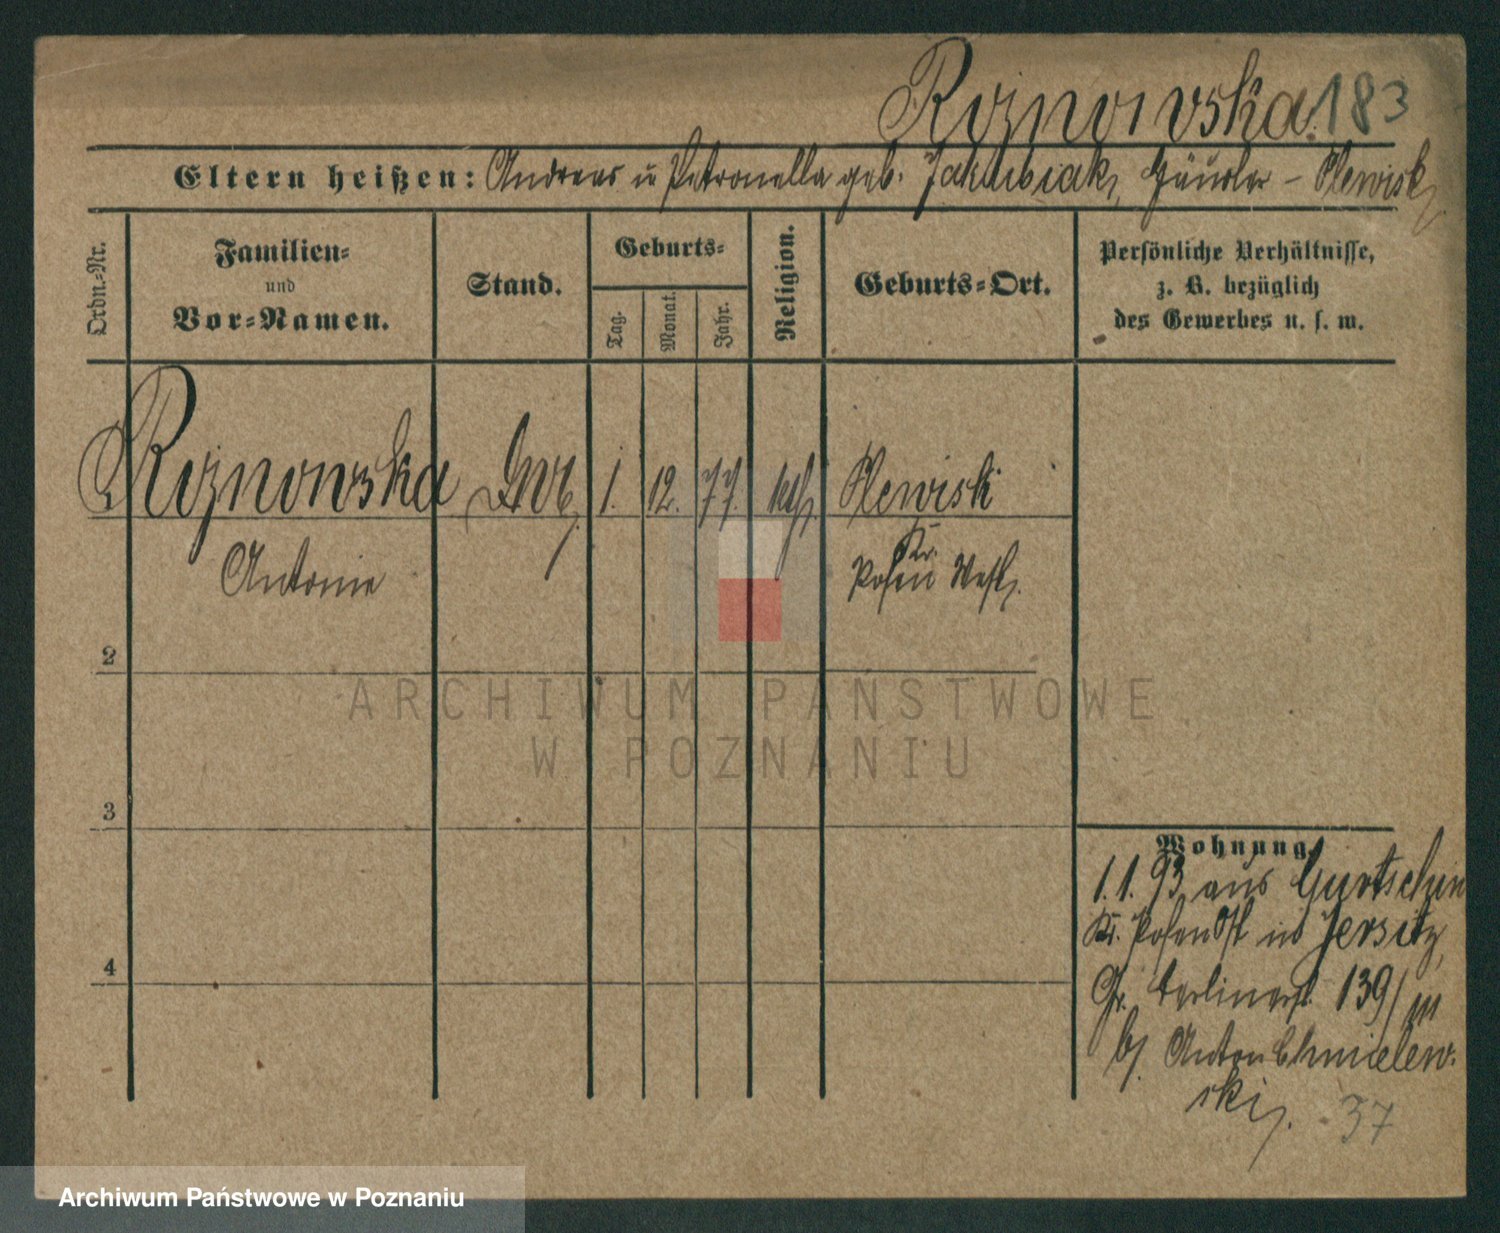 Rożnowska. 183
Eltern heißen: Andreas u Petronella geb. Jakubiak, Häusler - Plewisk
Ordn.-Nr.
Familien-
und
Vor-Namen.
Stand.
Geburts-
Tag.
Monat.
Jahr.
Religion.
Geburts-Ort.
Persönliche Verhältnisse,
z. B. bezüglich
des Gewerbes u. s. w.
Rożnowska 1. 12. 77. kath. Plewisk
Antonie
Kr.
Posen West.
2
ARCHIWUM PAŃSTWOWE
W POZNANIU
3
4
Wohnung.
1.1.93 aus Gurtschin
Kr. Posen Ost in Jersitz,
Gr. Berlinerst. 139/III
b/. Anton Chmielew-
ski.
37
Archiwum Państwowe w Poznaniu